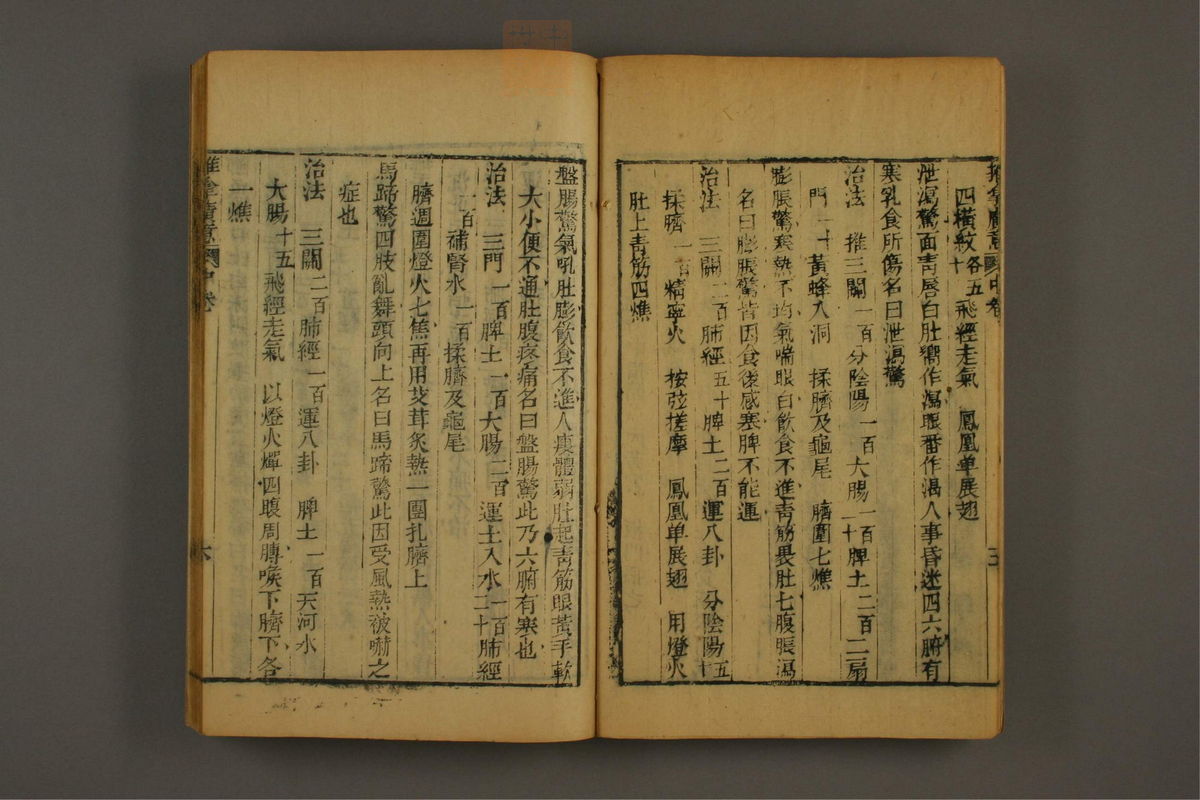 四橫紋各五十 飛經走氣 鳳凰单展翅
泄瀉驚面靑唇白肚嚮作瀉眼番作渴人事昏迷四六腑有
寒乳食所傷名曰泄瀉驚
治法 推三關一百分陰陽一百大腸一百脾土二百二扇
門 黃蜂入洞 揉臍及龜尾 臍圍七燋
膨脹驚寒熱不均氣喘眼白飲食不進靑筋畏肚七腹脹瀉
名曰膨脹驚皆因食後感寒脾不能運
治法 三關二百肺經五十脾土二百運八卦 分陰陽五十
揉臍一百精寧火 按弦搓摩 鳳凰单展翅 用燈火
肚上靑筋四燋
盤腸驚氣吼肚膨飲食不進人瘦體弱肚起靑筋眼黃手軟
大小便不通肚腹疼痛名曰盤腸驚此乃六腑有寒也
治法 三門一百脾土一百大腸二百運土入水一百二十肺經
一百補腎水一百揉臍及龜尾
臍週圍燈火七焦再用艾茸炙熱一團扎臍上
馬蹄驚四肢亂舞頭向上名曰馬蹄驚此因受風熱被嚇之
症也
治法 三關二百肺經一百運八卦 脾土一百天河水
大腸十五飛經走氣 以燈火燀四腹周膊喉下臍下各
一燋
六